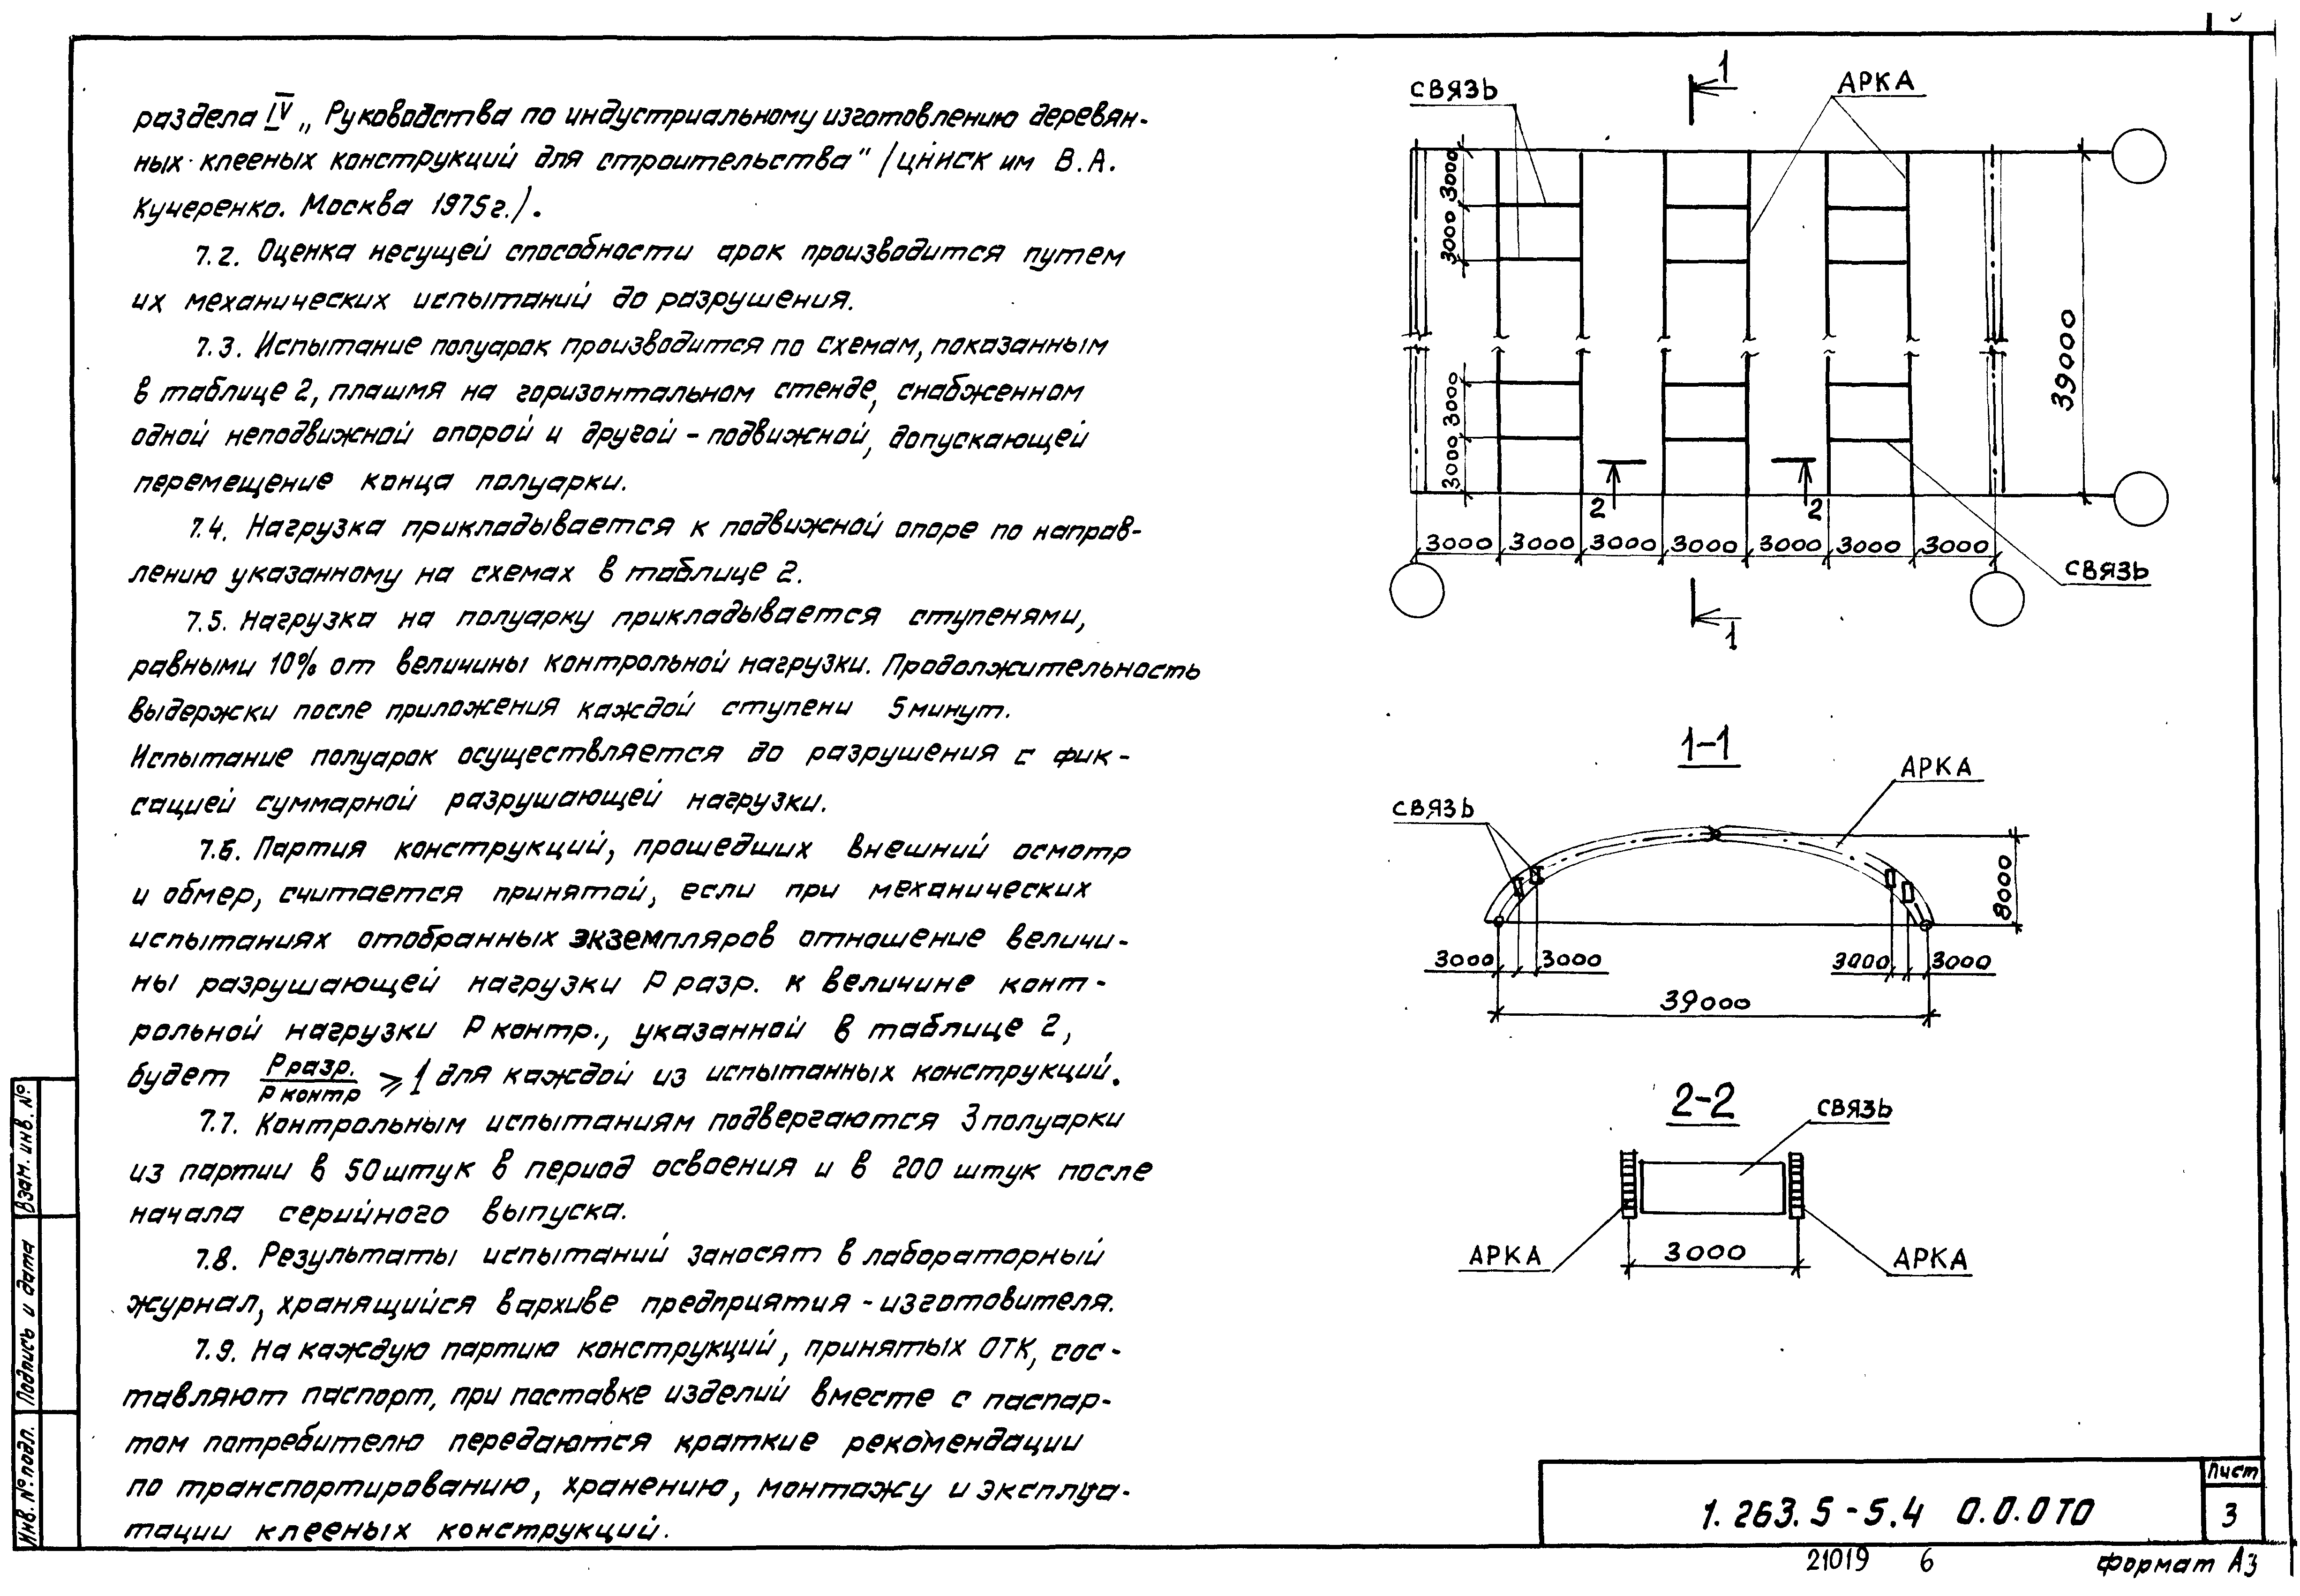 раздела IV „Руководства по индустриальному изготовлению деревян-
ных клееных конструкций для строительства" /ЦНИИСК им В.А.
Кучеренко. Москва 1975г./.
7.2. Оценка несущей способности арок производится путем
их механических испытаний до разрушения.
7.3. Испытание полуарок производится по схемам, показанным
в таблице 2, плашмя на горизонтальном стенде, снабженном
одной неподвижной опорой и другой - подвижной, допускающей
перемещение конца полуарки.
7.4. Нагрузка прикладывается к подвижной опоре по направ-
лению указанному на схемах в таблице 2.
7.5. Нагрузка на полуарку прикладывается ступенями,
равными 10% от величины контрольной нагрузки. Продолжительность
выдержки после приложения каждой ступени 5 минут.
Испытание полуарок осуществляется до разрушения с фик-
сацией суммарной разрушающей нагрузки.
7.6. Партия конструкций, прошедших внешний осмотр
и обмер, считается принятой, если при механических
испытаниях отобранных экземпляров отношение величи-
ны разрушающей нагрузки Р разр. к величине конт-
рольной нагрузки Р контр., указанной в таблице 2,
будет Р разр./Р контр ⩾ 1 для каждой из испытанных конструкций.
7.7. Контрольным испытаниям подвергаются 3 полуарки
из партии в 50 штук в период освоения и в 200 штук после
начала серийного выпуска.
7.8. Результаты испытаний заносят в лабораторный
журнал, хранящийся в архиве предприятия - изготовителя.
7.9. На каждую партию конструкций, принятых ОТК, сос-
тавляют паспорт, при поставке изделий вместе с паспор-
том потребителю передаются краткие рекомендации
по транспортированию, хранению, монтажу и эксплуа-
тации клееных конструкций.
СВЯЗЬ
1
АРКА
3000
3000
39000
3000
3000
2
2
3000 3000 3000 3000 3000 3000 3000
СВЯЗЬ
1
1-1
АРКА
СВЯЗЬ
8000
3000 3000 3000 3000
39000
2-2
СВЯЗЬ
АРКА
3000
АРКА
Взам. инв. №
Подпись и дата
Инв. № подл.
1.263.5-5.4 0.0.0 ТО
Лист
3
21019 6
формат А3